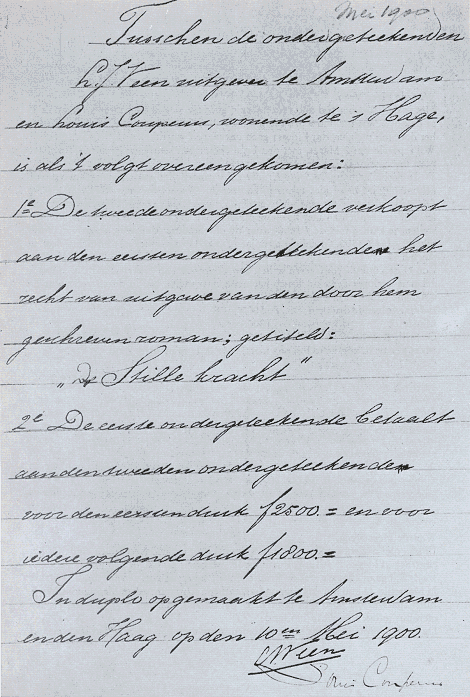 Mei 1900
Tusschen de ondergeteekenden
L.J. Veen uitgever te Amsterdam
en Louis Couperus, wonende te 's Hage,
is als 't volgt overeengekomen:
1e De tweede ondergeteekende verkoopt
aan den eersten ondergeteekende het
recht van uitgave van den door hem
geschreven roman; getiteld:
„De Stille kracht"
2e De eerste ondergeteekende betaalt
aan den tweeden ondergeteekende
voor den eersten druk f2500.= en voor
iedere volgende druk f1800.=
In duplo opgemaakt te Amsterdam
en den Haag op den 10en Mei 1900.
LJVeen
Louis Couperus